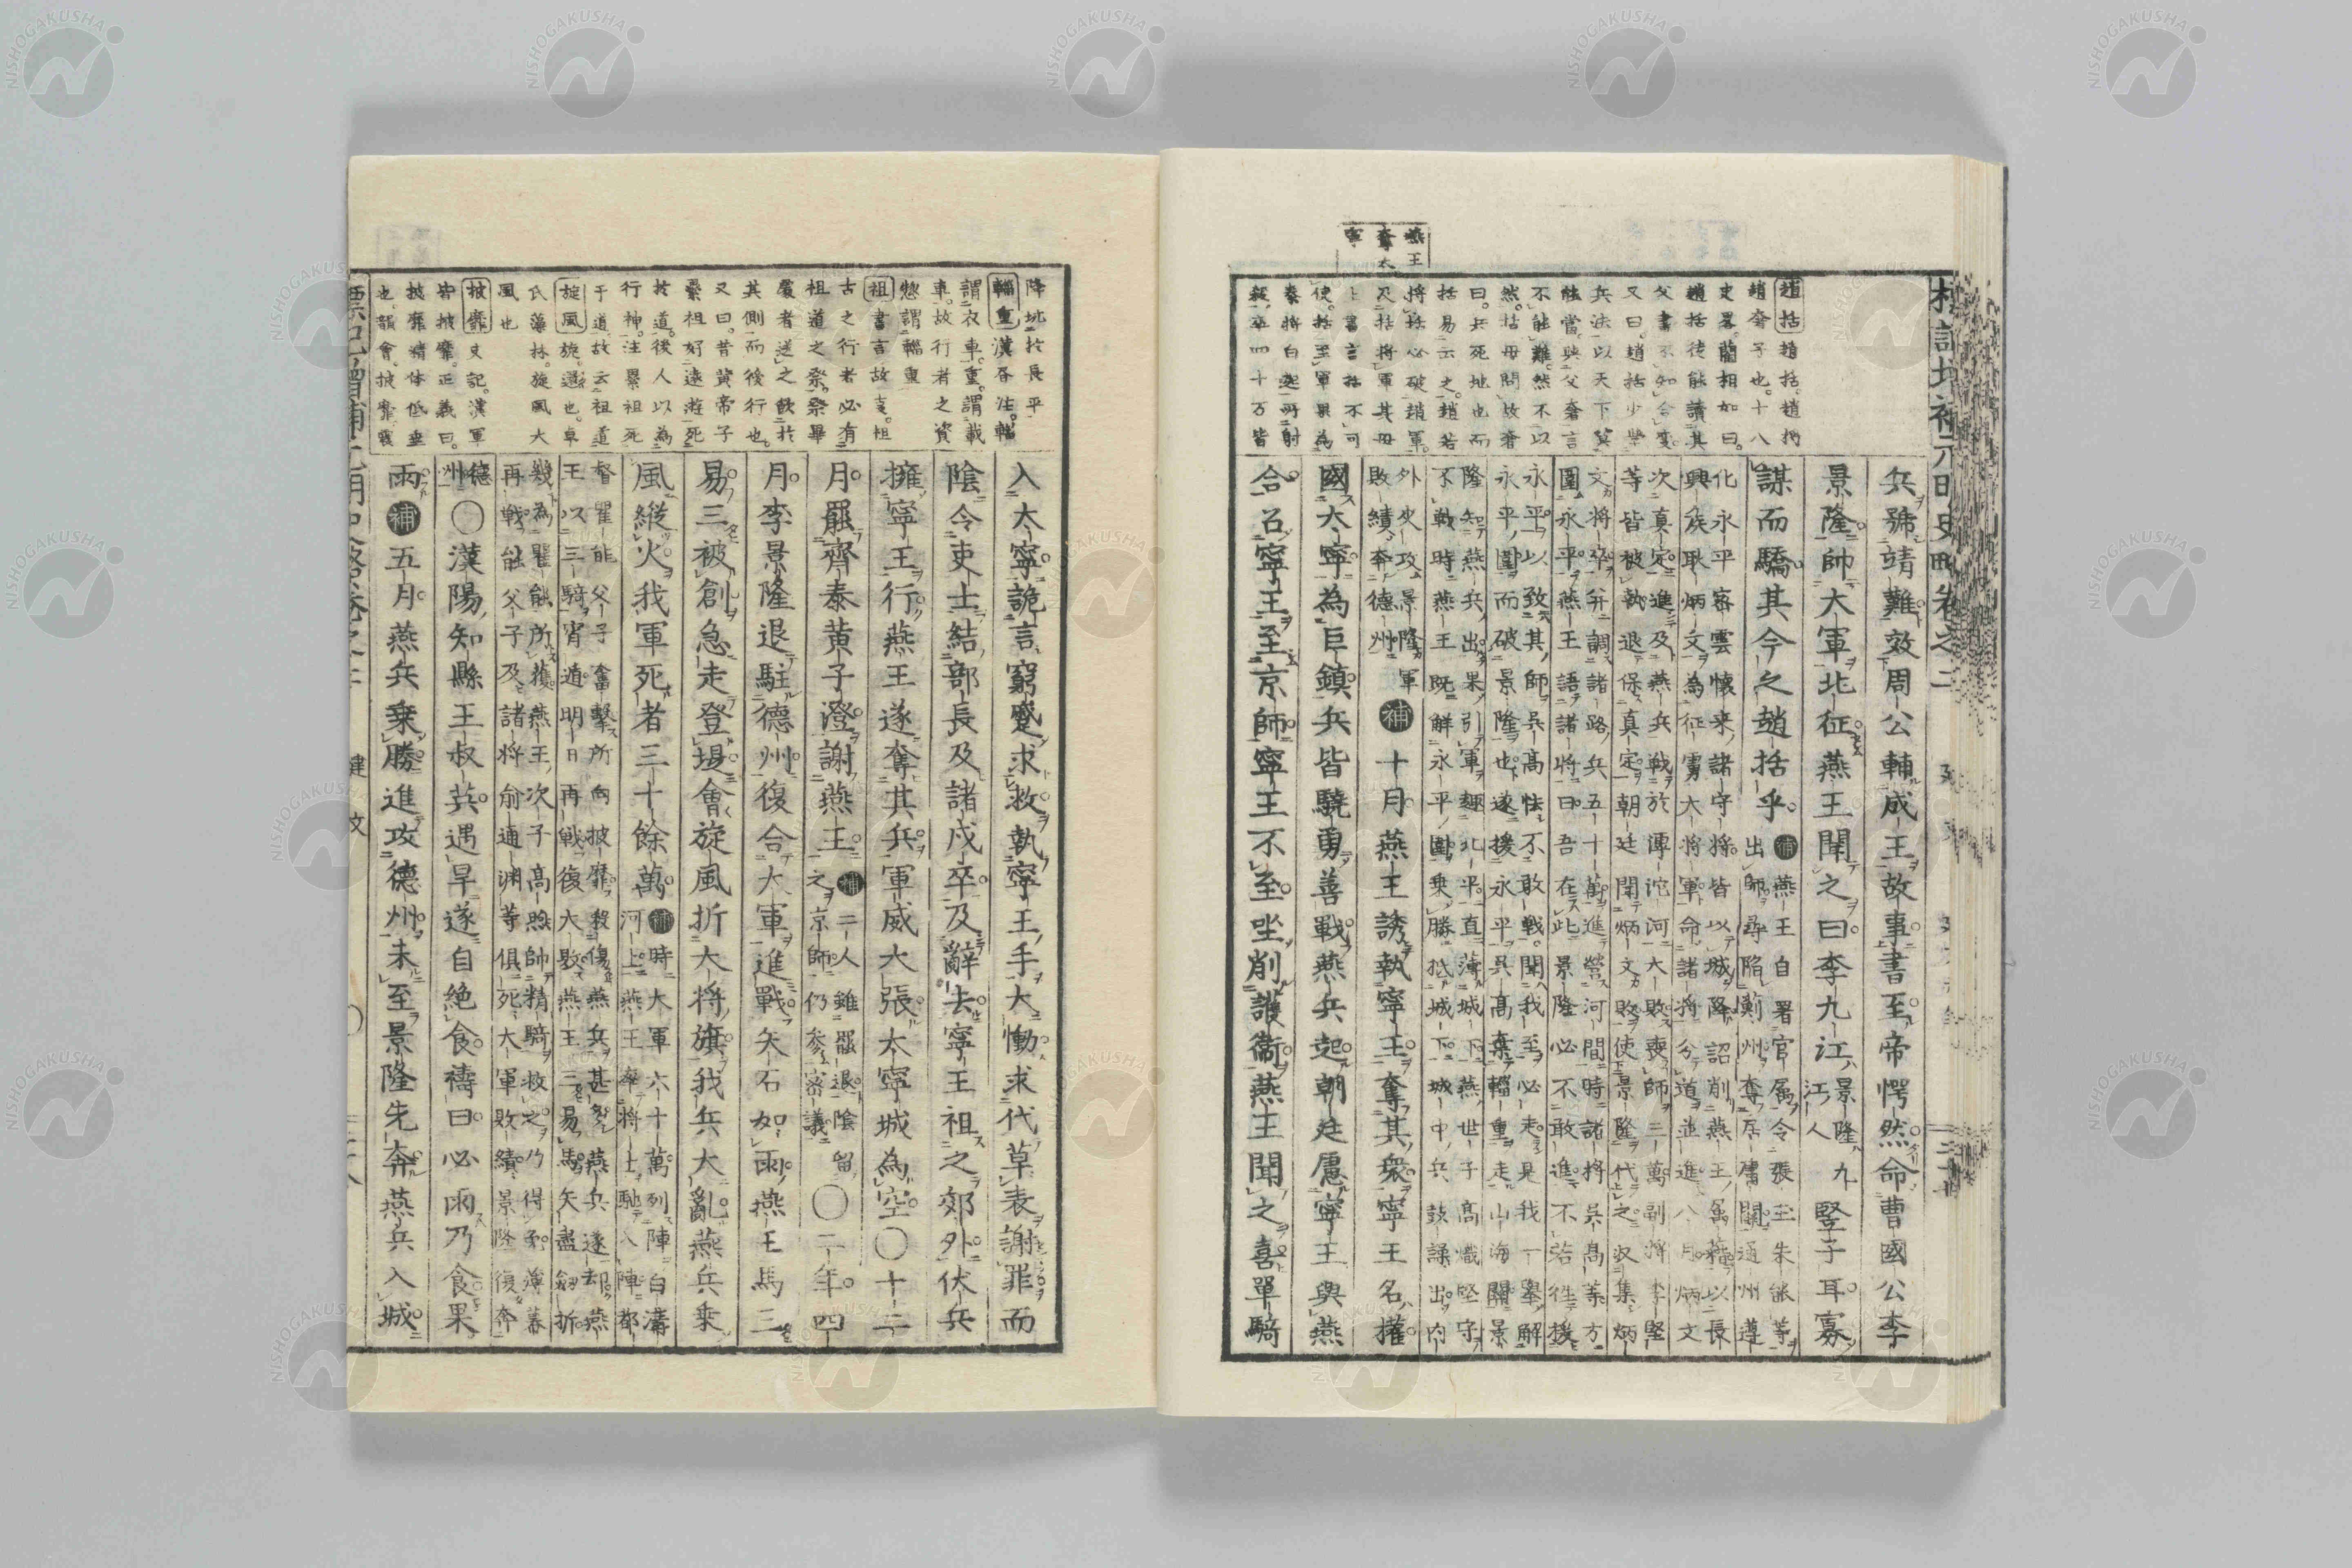 燕王
奪太
寧
趙括趙括。趙將
趙奢子也。十八
史畧。藺相如曰。
趙括徒能讀其
父書不知合變。
又曰。趙括少學
兵法以天下莫
能當。與父奢言
不能難。然不以
然。括母問故奢
曰。兵死地也而
括易言之。趙若
將括必破趙軍。
及括將軍其母
上書言括不可
使。括至軍果為
秦將白起所射
殺。卒四十万皆
兵號靖難效周公輔成王故事書至帝愕然命曹國公李
景隆帥大軍北征燕王聞之曰李九江景隆九
江人豎子耳寡
謀而驕其今之趙括乎補燕王自署官屬令張玉朱能等
出師尋陷薊州奪居庸關通州遵
化永平密雲懷來諸守將皆以城降詔削燕王屬籍以長
興侯耿炳文為征虜大將軍命諸將分道並進八月炳文
次真定進及燕兵戰於滹沱河大敗喪師三萬副將李堅
等皆被執退保真定朝廷聞炳文敗使景隆代之収集炳
文將卒并調諸路兵五十萬進營河間時諸將吳高等方
圍永平燕王語諸將曰吾在此景隆必不敢進不若徃援
永平以致其師吳高怯不敢戰聞我至必走是我一舉解
永平圍而破景隆也遂援永平吳高棄輜重走山海關景
隆知燕兵出果引軍趨北平直薄城下燕世子高熾堅守
不戰時燕王既解永平圍乗勝抵城下城中兵鼓譟出内
外交攻景隆軍
敗績奔德州補十月燕王誘執寧王奪其衆寧王名權
國大寧為巨鎮兵皆驍勇善戰燕兵起朝廷慮寧王與燕
合召寧王至京師寧王不至坐削護衞燕王聞之喜單騎
降坑於長平
輜重漢書注。輜
謂衣車。重。謂載
車。故行者之資
惣謂輜重
祖書言故支。祖
古之行者必有
祖道之祭。祭畢
處者送之飲於
其側而後行也。
又曰。昔黄帝子
纍祖好遠遊死
於道。後人以為
行神。注累祖死
于道故云祖道
旋風旋。還也。卓
氏藻林。旋風大
風也
披靡史記。漢軍
皆披靡。正義曰。
披靡猶体低垂
也。韻會。披靡震
入大寧詭言窮蹙求救執寧王手大慟求代草表謝罪而
陰令吏士結部長及諸戍卒及辭去寧王祖之郊外伏兵
擁寧王行燕王遂奪其兵軍威大張大寧城為空○十二
月罷齊泰黄子澄謝燕王補二人雖罷退陰留
之京師仍参密議○二年四
月李景隆退駐德州復合大軍進戰矢石如雨燕王馬三
易三被創急走登堤會旋風折大将旗我兵大亂燕兵乗
風縱火我軍死者三十餘萬補時大軍六十萬列陣白溝
河上燕王率將士馳入陣都
督瞿能父子奮擊所向披靡殺傷燕兵甚多燕兵遂却燕
王以三騎宵遁明日再戰復大敗燕王三易馬矢盡劒折
幾為瞿能所獲燕王次子高煦帥精騎救之乃得免薄暮
再戰能父子及諸將俞通淵等俱死大軍敗績景隆復奔
德
州○漢陽知縣王叔英遇旱遂自絶食禱曰必雨乃食果
雨補五月燕兵乗勝進攻德州未至景隆先奔燕兵入城